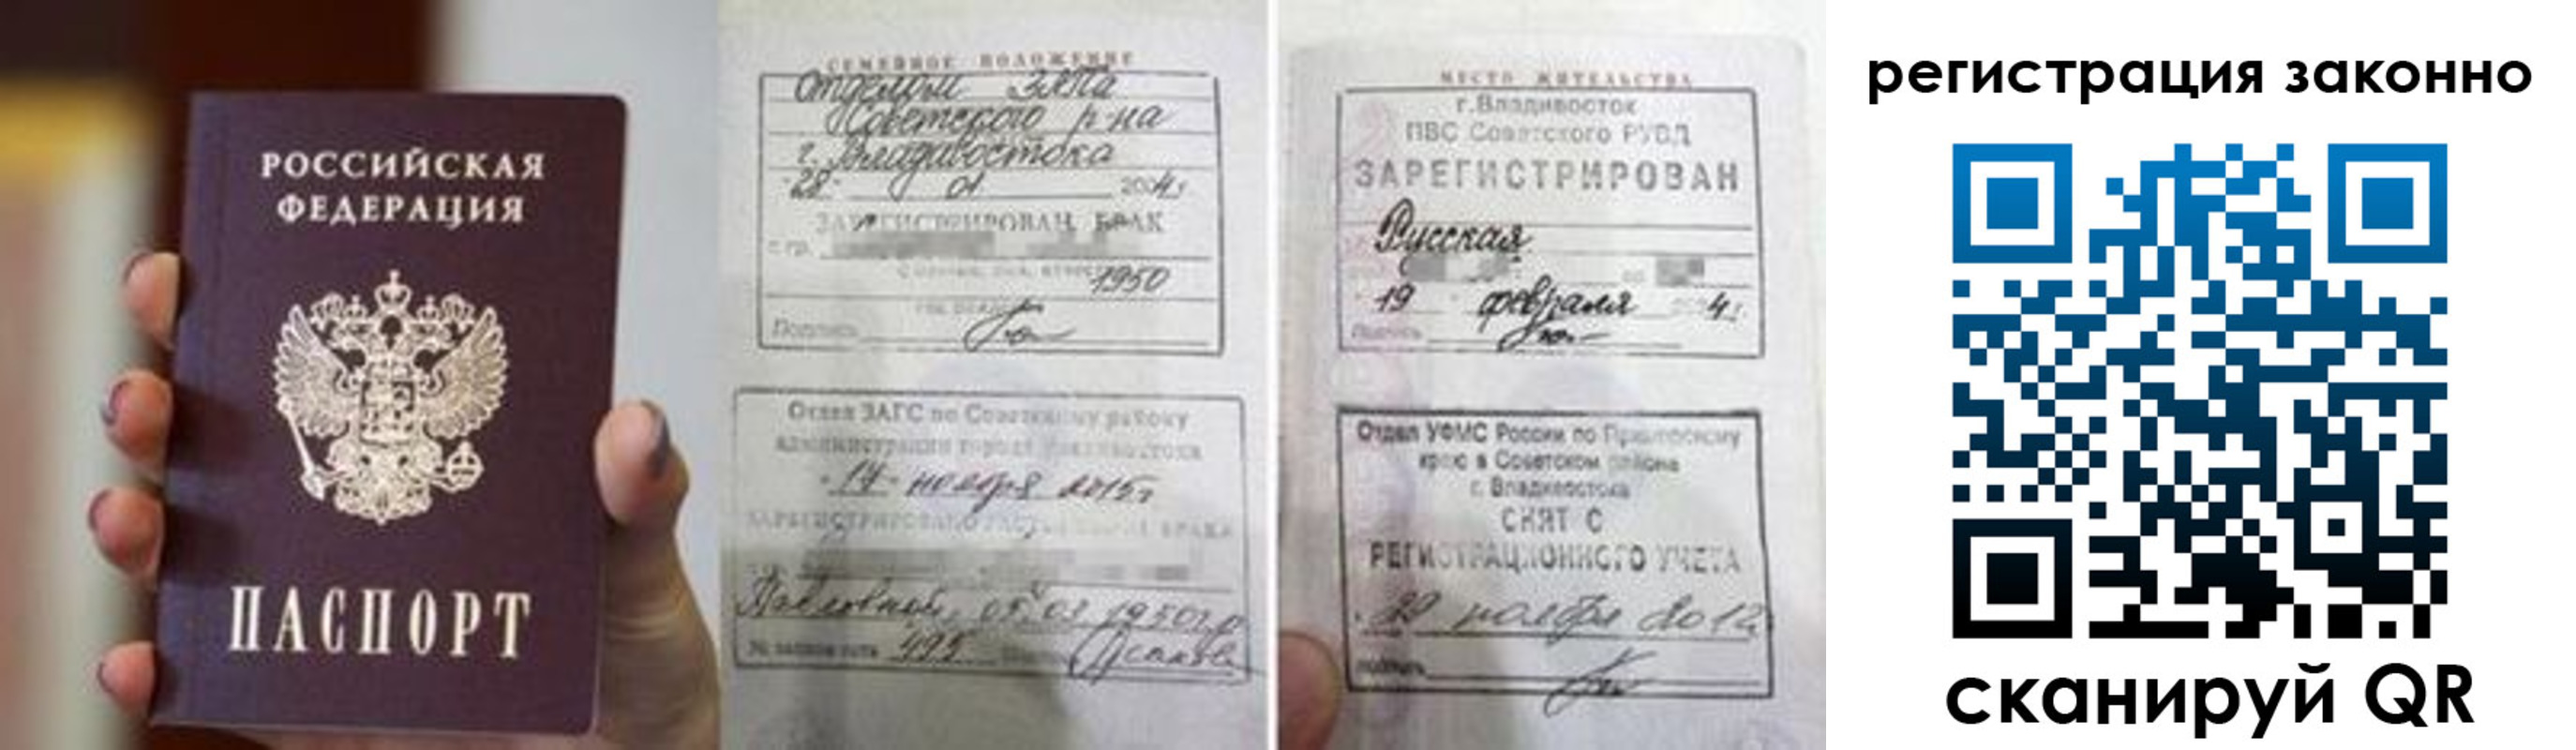 РОССИЙСКАЯ
ФЕДЕРАЦИЯ
ПАСПОРТ
СЕМЕЙНОЕ ПОЛОЖЕНИЕ
Отделом ЗАГСа
Советского р-на
г. Владивостока
"28" 01 2004 г.
ЗАРЕГИСТРИРОВАН БРАК
с гр.
1950
Подпись
Отдел ЗАГС по Советскому району
администрации города Владивостока
"17" ноября 2015 г.
Павловной, 05.03.1950 г.р.
№ записи акта 495
МЕСТО ЖИТЕЛЬСТВА
г.Владивосток
ПВС Советского РУВД
ЗАРЕГИСТРИРОВАН
Русская
19 февраля 4г.
Подпись
Отдел УФМС России по Приморскому
краю в Советском районе
г. Владивостока
СНЯТ С
РЕГИСТРАЦИОННОГО УЧЕТА
ноября 2012
подпись
регистрация законно
сканируй QR